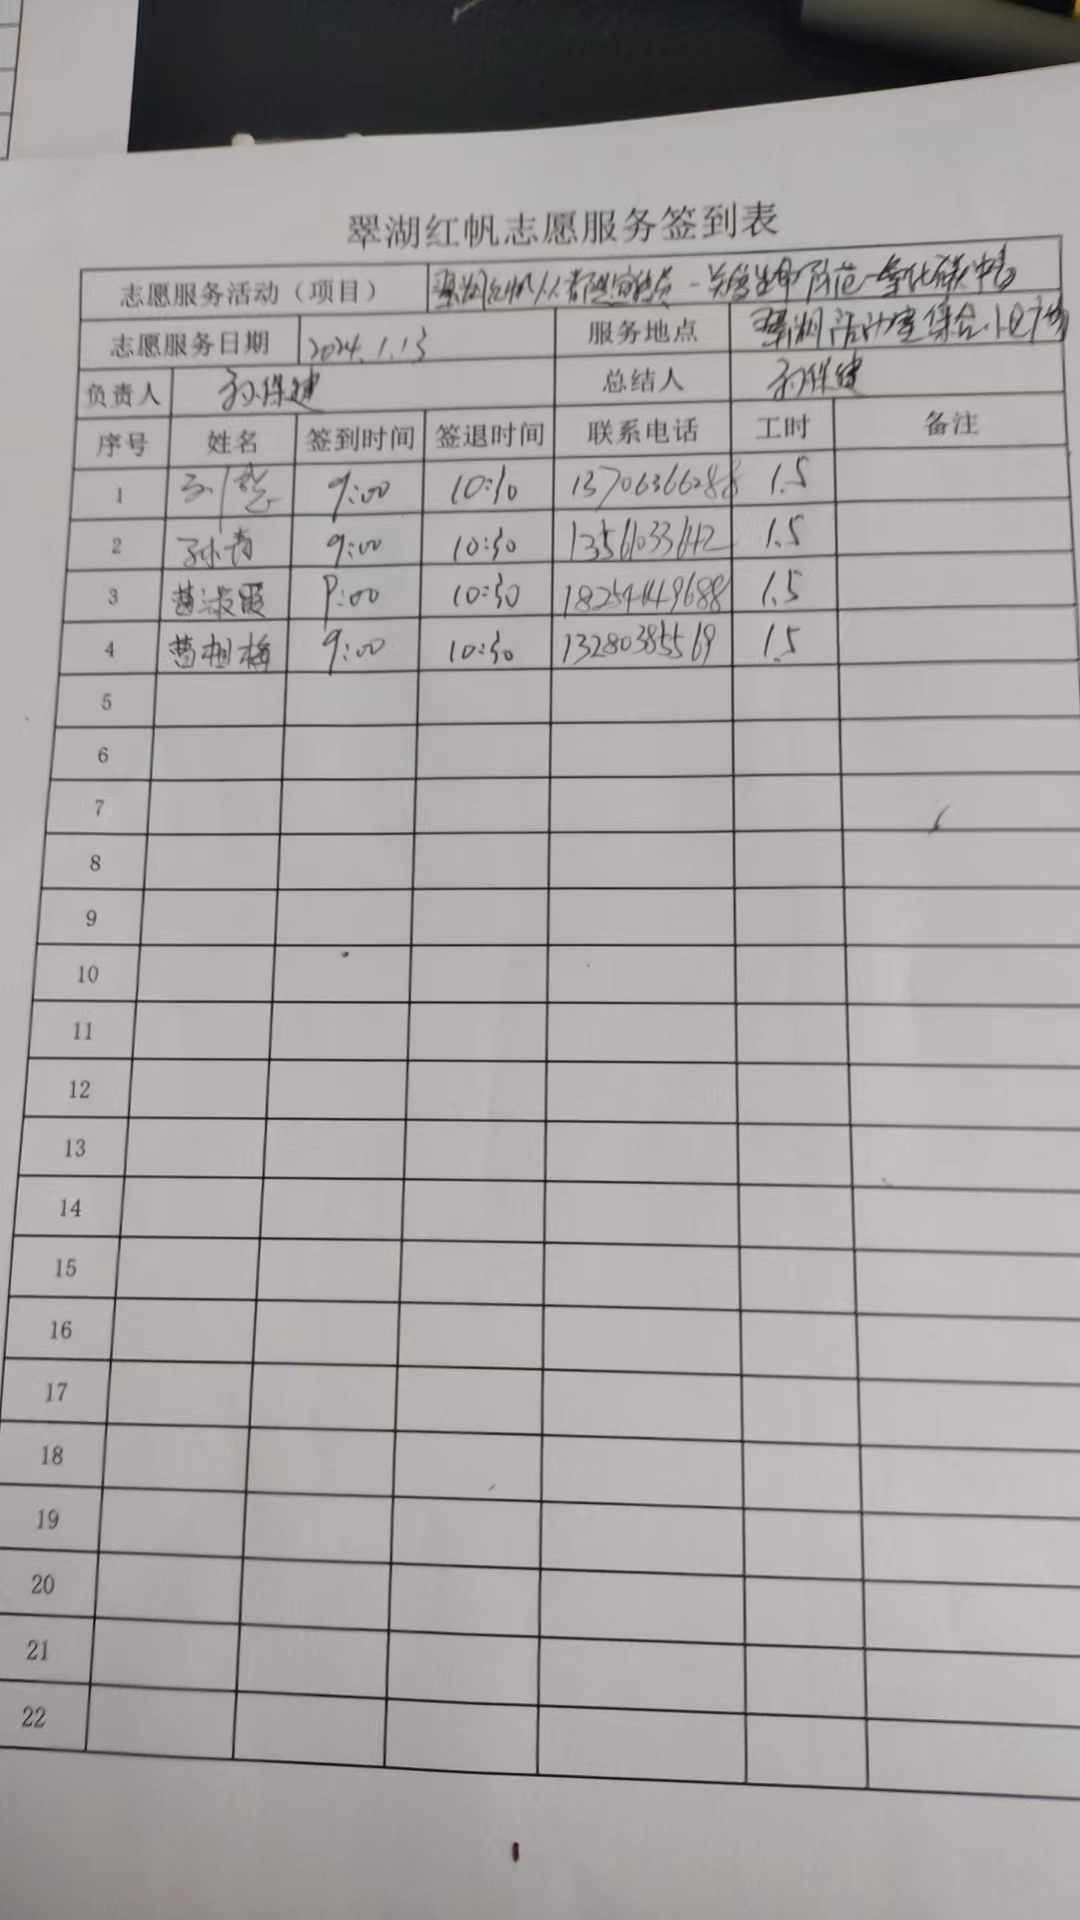 翠湖红帆志愿服务签到表
志愿服务活动（项目） 翠湖红帆人人都是宣传员-关爱生命防范一氧化碳中毒
志愿服务日期 2024.1.13 服务地点 翠湖活动室集合
负责人 孙保健 总结人 孙保健
序号 姓名 签到时间 签退时间 联系电话 工时 备注
1 9:00 10:30 13706366288 1.5
2 孙青 9:00 10:30 13561033642 1.5
3 曹淑霞 9:00 10:30 18254149688 1.5
4 曹相梅 9:00 10:30 13280385569 1.5
5
6
7
8
9
10
11
12
13
14
15
16
17
18
19
20
21
22